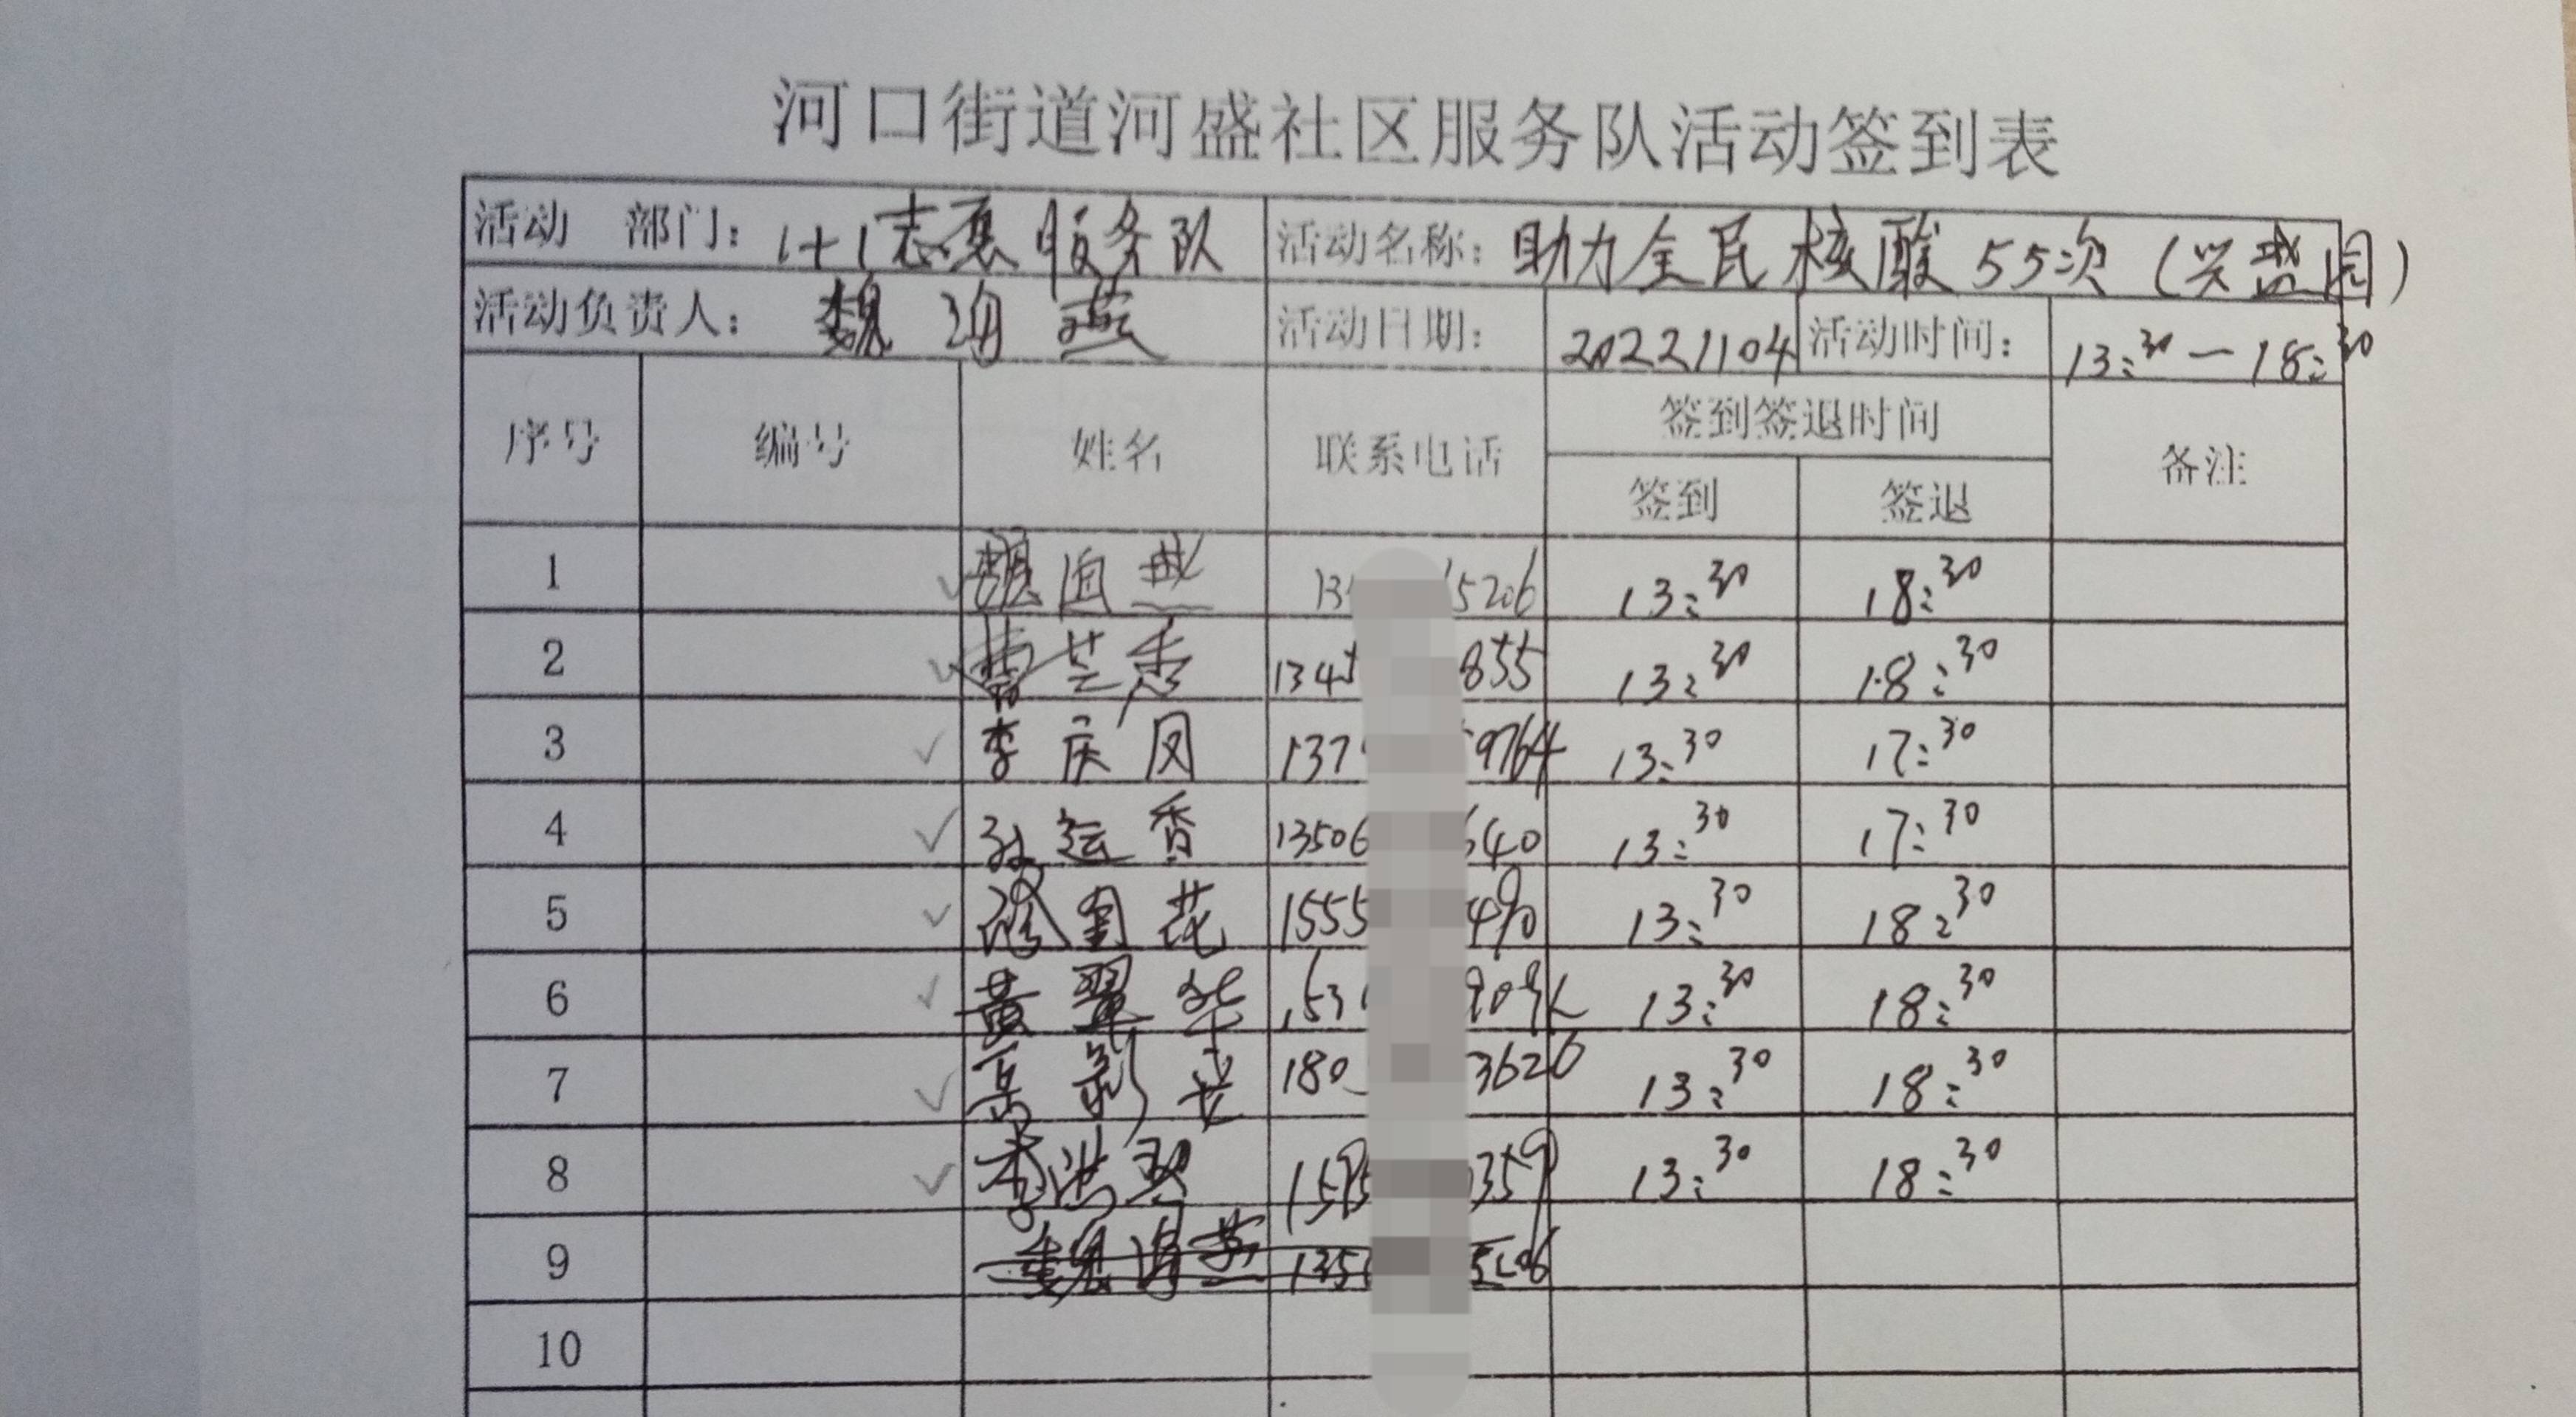 河口街道河盛社区服务队活动签到表
活动 部门： 1+1志愿服务队 活动名称： 助力全民核酸55次（兴盛园）
活动负责人： 魏 燕 活动日期： 20221104 活动时间： 13:30—18:30
序号 编号 姓名 联系电话 签到签退时间 备注
签到 签退
1 魏 燕 13 5206 13:30 18:30
2 芸香 134 855 13:30 18:30
3 李庆凤 137 9764 13:30 17:30
4 孙运香 13506 640 13:30 17:30
5 花 1555 490 13:30 18:30
6 黄翠华 13:30 18:30
7 180 3626 13:30 18:30
8 李洪 359 13:30 18:30
9
10